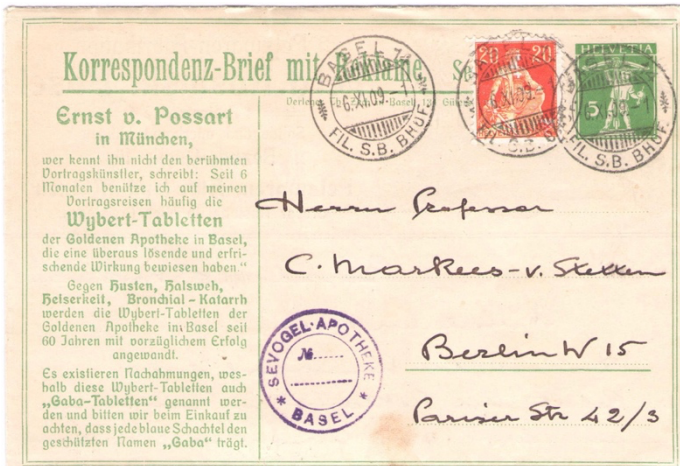 Korrespondenz-Brief mit
Ernst v. Possart
in München,
wer kennt ihn nicht den berühmten
Vortragskünstler, schreibt: Seit 6
Monaten benütze ich auf meinen
Vortragsreisen häufig die
Wybert-Tabletten
der Goldenen Apotheke in Basel,
die eine überaus lösende und erfri-
schende Wirkung bewiesen haben."
Gegen Husten, Halsweh,
Heiserkeit, Bronchial-Katarrh
werden die Wybert-Tabletten der
Goldenen Apotheke in Basel seit
60 Jahren mit vorzüglichem Erfolg
angewandt.
Es existieren Nachahmungen, wes-
halb diese Wybert-Tabletten auch
„Gaba-Tabletten" genannt wer-
den und bitten wir beim Einkauf zu
achten, dass jede blaue Schachtel den
geschützten Namen „Gaba" trägt.
BASEL 11
6.XI.09.-1
FIL. S.B. BHOF.
20 20
6.XI.09.-1
HELVETIA
5
09-1
FIL. S.B. BHOF.
Herrn Professor
C. Markees-v. Stetten
Berlin W 15
Pariser Str 42/3
SEVOGEL-APOTHEKE
No
BASEL